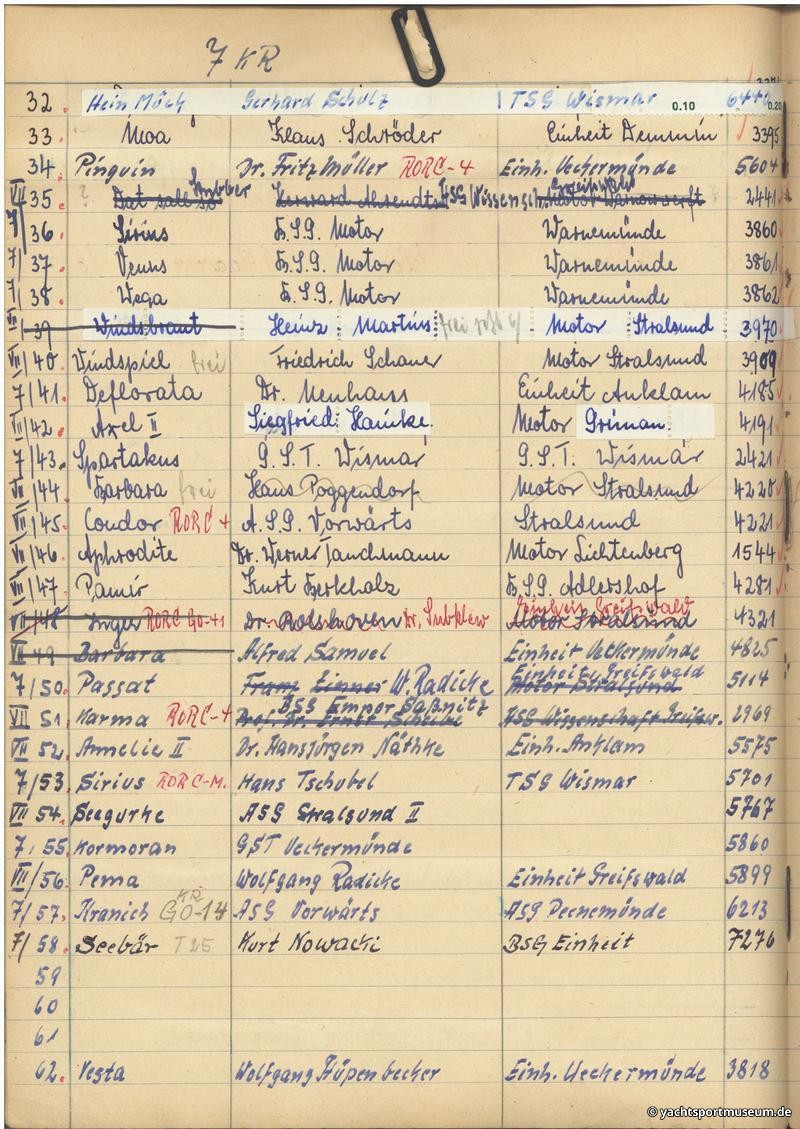 7 KR
32. Hein Mück Gerhard Schulz TSG Wismar 0.10 0.20
33. Moa Klaus Schröder Einheit Demmin 3395
34. Pinguin Dr. Fritz Müller RORC-4 Einh. Ueckermünde 5604
VII 35. ? Dat sall so HSG Wissensch. Greifswald 2441
7/36. Sirius B.S.G. Motor Warnemünde 3860
7/37. Venus B.S.G. Motor Warnemünde 3861
7/38. Wega B.S.G. Motor Warnemünde 3862
VII 39 Windsbraut Heinz Martins frei Motor Stralsund 3970
VII/40. Windspiel frei Friedrich Schauer Motor Stralsund 3909
7/41. Deflorata Dr. Neuhauss Einheit Anklam 4185
VII/42. Axel II Siegfried Hainke. Motor Griman 4191
7/43. Spartakus G.S.T. Wismar G.S.T. Wismar 2421
VII/44 Barbara frei Hans Poggendorf Motor Stralsund 4220
VII/45. Condor RORC 4 A.S.G. Vorwärts Stralsund 4221
VII/46. Aphrodite Dr. Werner Tanchmann Motor Lichtenberg 1544
VII/47. Pamir Kurt Berkholz B.S.G. Adlershof 4281
VII/48 Inger RORC GO-41 Dr. Rolshoven Dr. Subklew Motor Stralsund Einheit Greifswald 4321
VII 49 Barbara Alfred Samuel Einheit Ueckermünde 4825
7/50. Passat Franz W. Radicke Motor Stralsund Einheit Greifswald 5114
VII 51. Karma RORC-4 Prof. Dr. Ernst BSG Empor Saßnitz HSG Wissenschaft Greifsw. 2969
VII 52. Annelie II Dr. Hansjürgen Näthke Einh. Anklam 5575
7/53. Sirius RORC-M. Hans Tschubel TSG Wismar 5701
VII 54. Seegurke ASG Stralsund II 5767
7. 55. Kormoran GST Ueckermünde 5860
VII/56. Pema Wolfgang Radicke Einheit Greifswald 5899
7/57. Kranich KR GO-14 ASG Vorwärts ASG Peenemünde 6213
7/58. Seebär T25 Kurt Nowacki BSG Einheit 7276
59
60
61
62. Vesta Wolfgang Hüpenbecker Einh. Ueckermünde 3818
© yachtsportmuseum.de